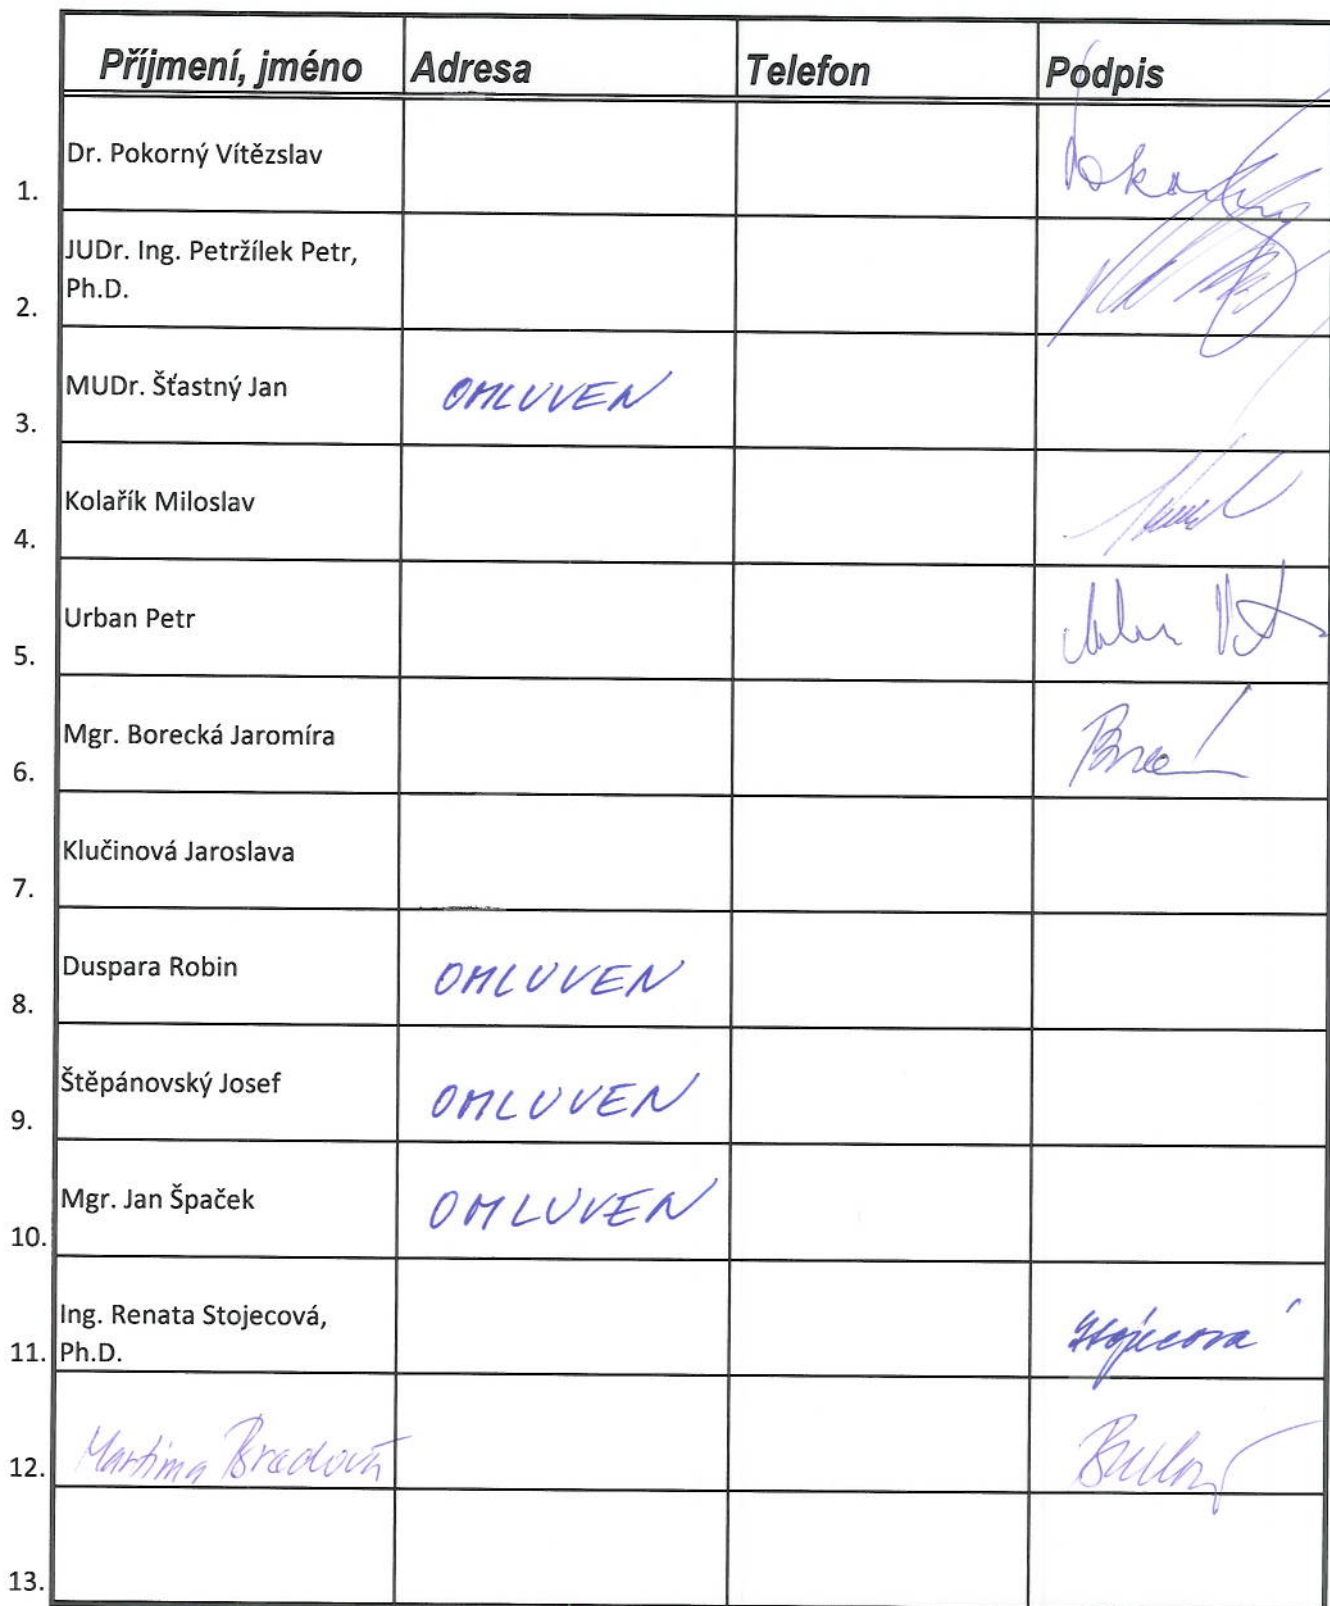 Příjmení, jméno Adresa Telefon Podpis
Dr. Pokorný Vítězslav
1.
JUDr. Ing. Petržílek Petr,
Ph.D.
2.
MUDr. Šťastný Jan OMLUVEN
3.
Kolařík Miloslav
4.
Urban Petr
5.
Mgr. Borecká Jaromíra
6.
Klučinová Jaroslava
7.
Duspara Robin OMLUVEN
8.
Štěpánovský Josef OMLUVEN
9.
Mgr. Jan Špaček OMLUVEN
10.
Ing. Renata Stojecová,
11. Ph.D. Stojecová
12. Martina
13.